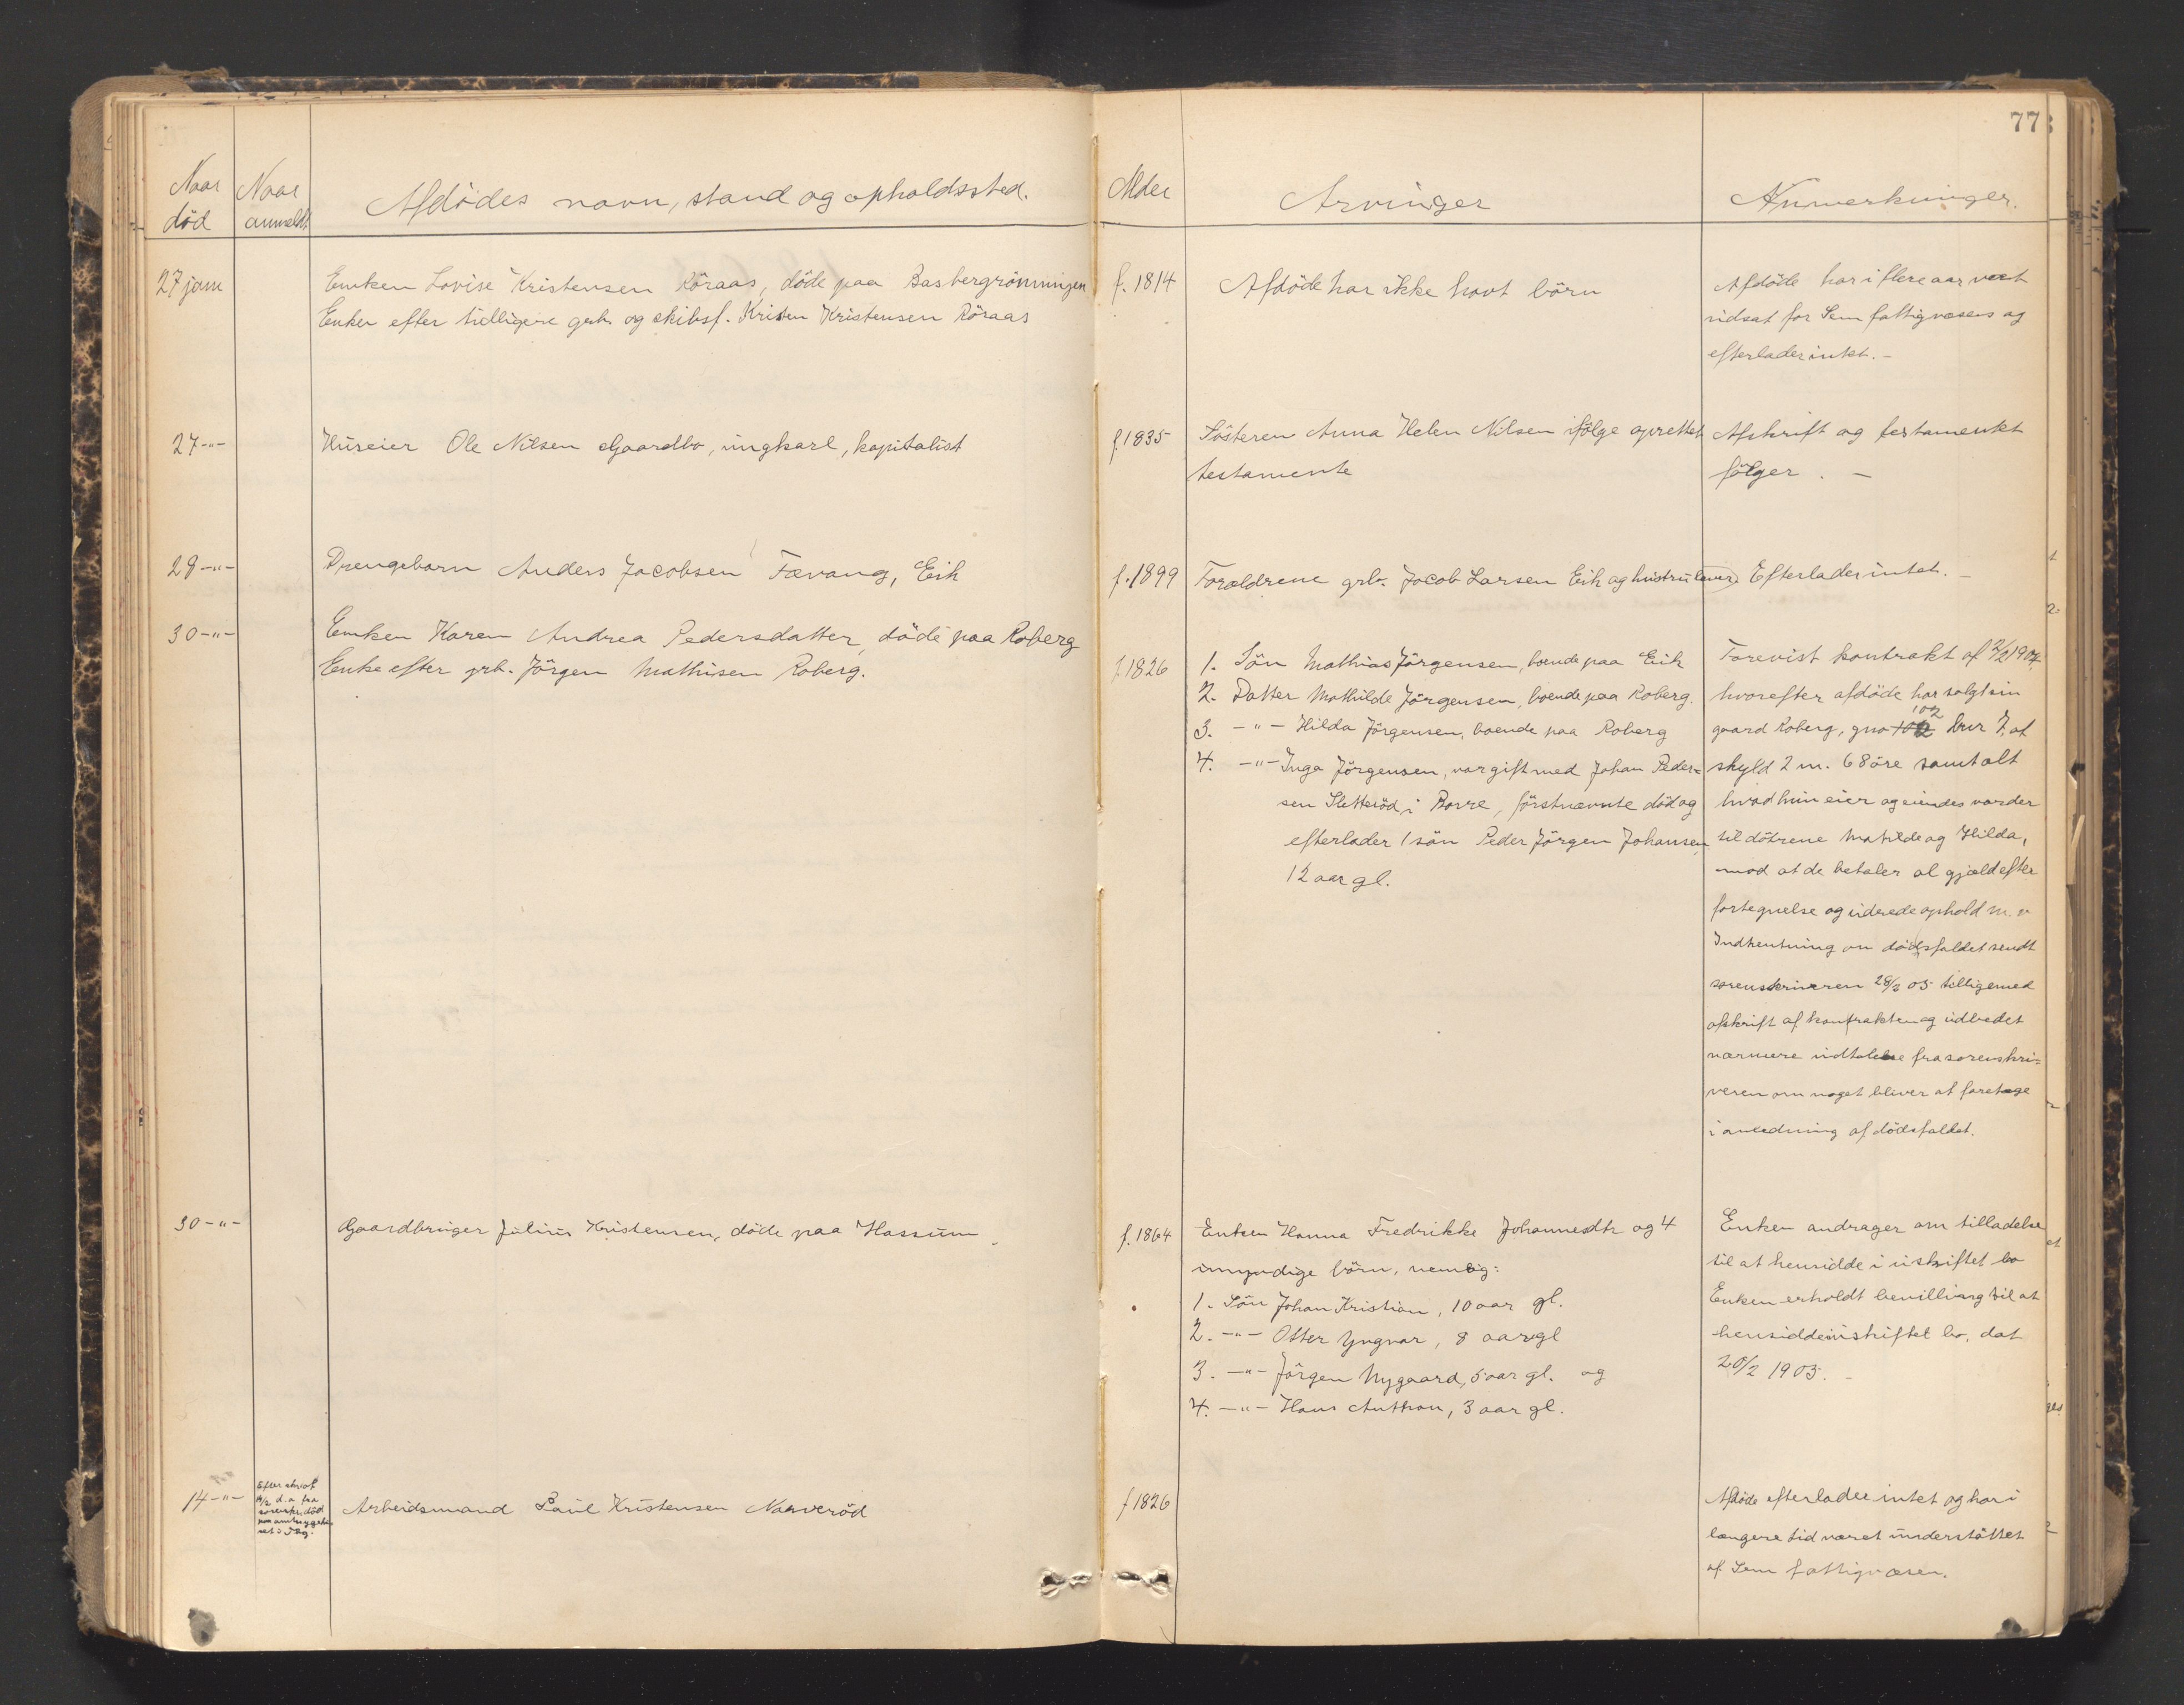 77
Naar død
Naar anmeldt.
Afdødes navn, stand og opholdssted.
Alder
Arvinger
Anmerkninger.
27 jan
Enken Lovise Kristensen Röraas, döde paa Basbergrönningen
Enke efter tidligere grb. og skibsf. Kristen Kristensen Röraas
f. 1814
Afdöde har ikke havt börn
Afdöde har i flere aar vært
sem fattigvæsens og
efterlader intet. -
27 -"-
Huseier Ole Nilsen Gaardbo, ungkarl, kapitalist
f. 1835
Søsteren Anna Helen Nilsen ifölge oprettet
testamente
Afskrift og testamentet
fölger. -
28 -"-
Drengebarn Anders Jacobsen Fævang, Eik
f. 1899
Forældrene grb. Jacob Larsen Eik og hustru lever
Efterlader intet. -
30 -"-
Enken Karen Andrea Pedersdatter, döde paa Roberg
Enke efter grb. Jörgen Mathisen Roberg.
f. 1826
1. Sön Mathias Jörgensen, boende paa Eik
2. Datter Mathilde Jörgensen, boende paa Roberg.
3. -"- Hilda Jörgensen, boende paa Roberg
4. -"- Inga Jörgensen, var gift med Johan Peder=
sen Sletteröd i Borre, förstnævnte död og
efterlader 1 sön Peder Jörgen Johansen,
12 aar gl.
Forevist kontrakt af 2/2 1904,
hvorefter afdöde har solgt sin
gaard Roberg, gno 102 bnr 7, af
skyld 2 m. 68 öre samt alt
hvad hun eier og eiendes vorder
til döttrene Matilde og Hilda,
mod at de betaler al gjæld efter
fortegnelse og uderede ophold m. v
Indhentning om dödsfaldet sendt
sorenskriveren 28/2 05 tilligemed
afskrift af kontrakten og udbedet
nærmere udtalelse fra sorenskri=
veren om noget bliver at foretage
i anledning af dödsfaldet.
30 -"-
Gaardbruger Julius Kristensen, döde paa Hassum.
f. 1864
Enken Hanna Fredrikke Johannesdtr og 4
umyndige börn, nemlig:
1. Sön Johan Kristian, 10 aar gl.
2. -"- Otter Yngvar, 8 aar gl
3. -"- Jörgen Nygaard, 5 aar gl. og
4. -"- Hans Anthon, 3 aar gl.
Enken andrager om tilladelse
til at hensidde i uskiftet bo
Enken erholdt bevilling til at
hensidde i uskiftet bo, dat
20/2 1905. -
14 -"-
Efter skriv
d. a. fra
sorenskr. död
Arbeidsmand Paul Kristensen Narveröd
f 1826
Afdöde efterlader intet og har i
længere tid været understöttet
af Sem fattigvæsen.